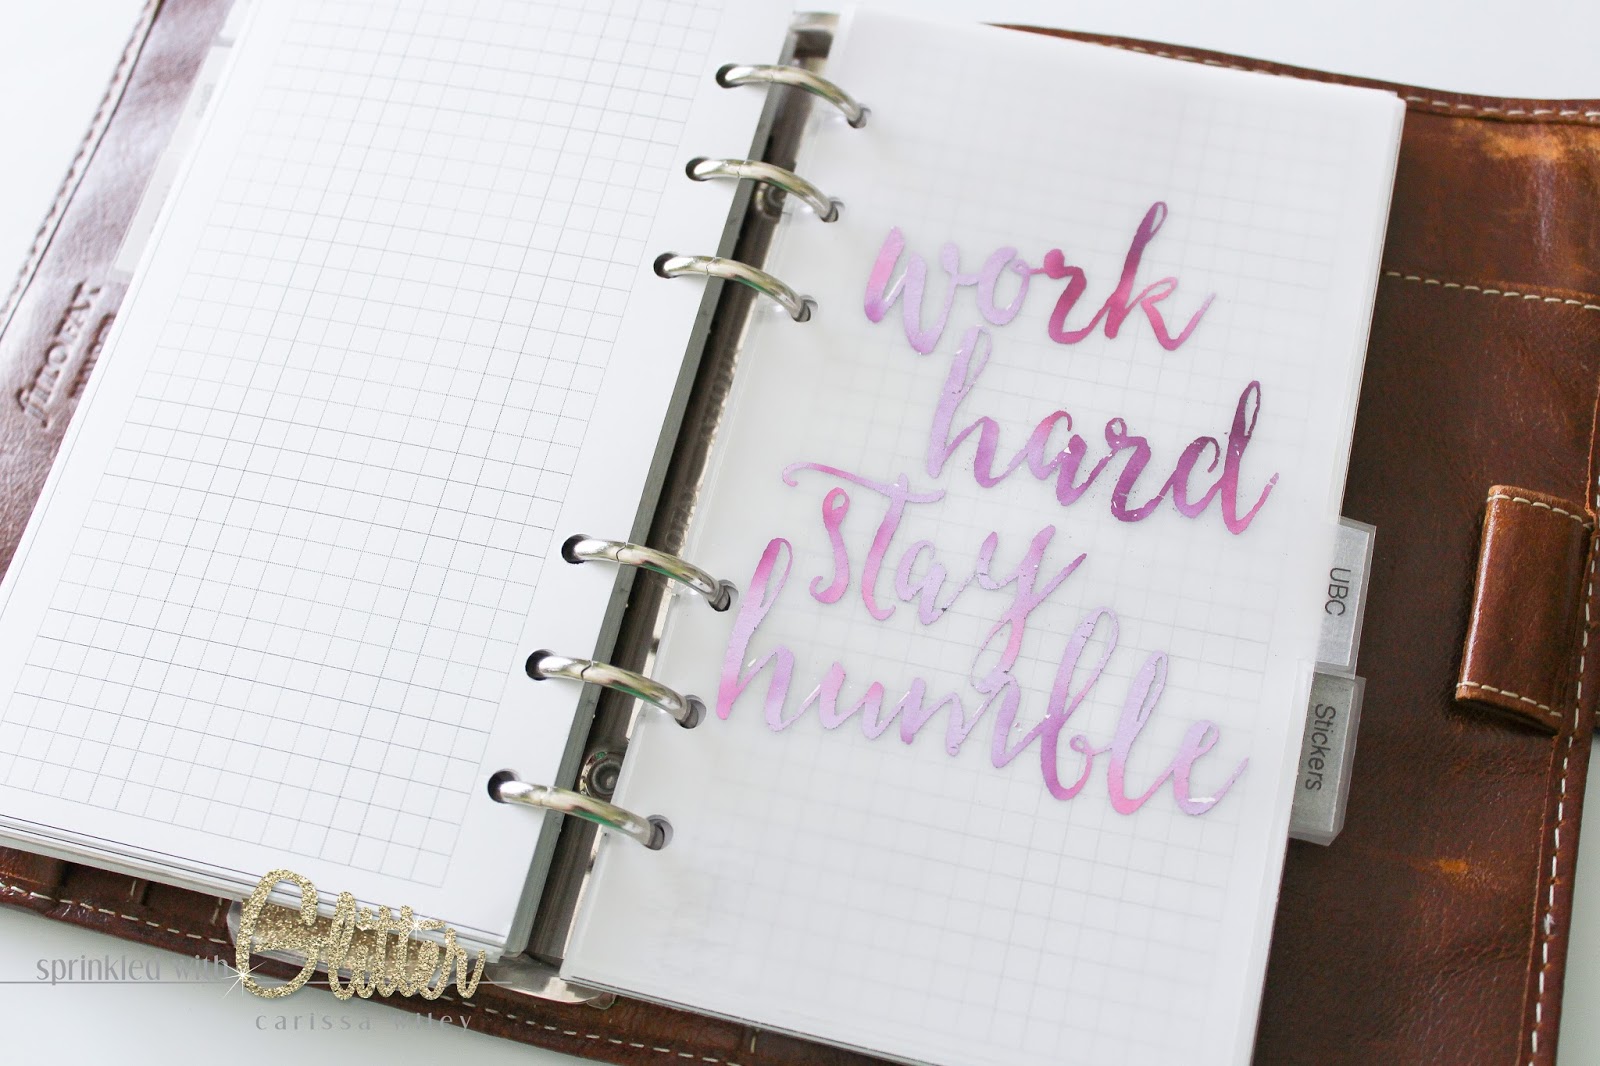 work
hard
stay
humble
UBC
Stickers
sprinkled with Glitter
carissa wiley